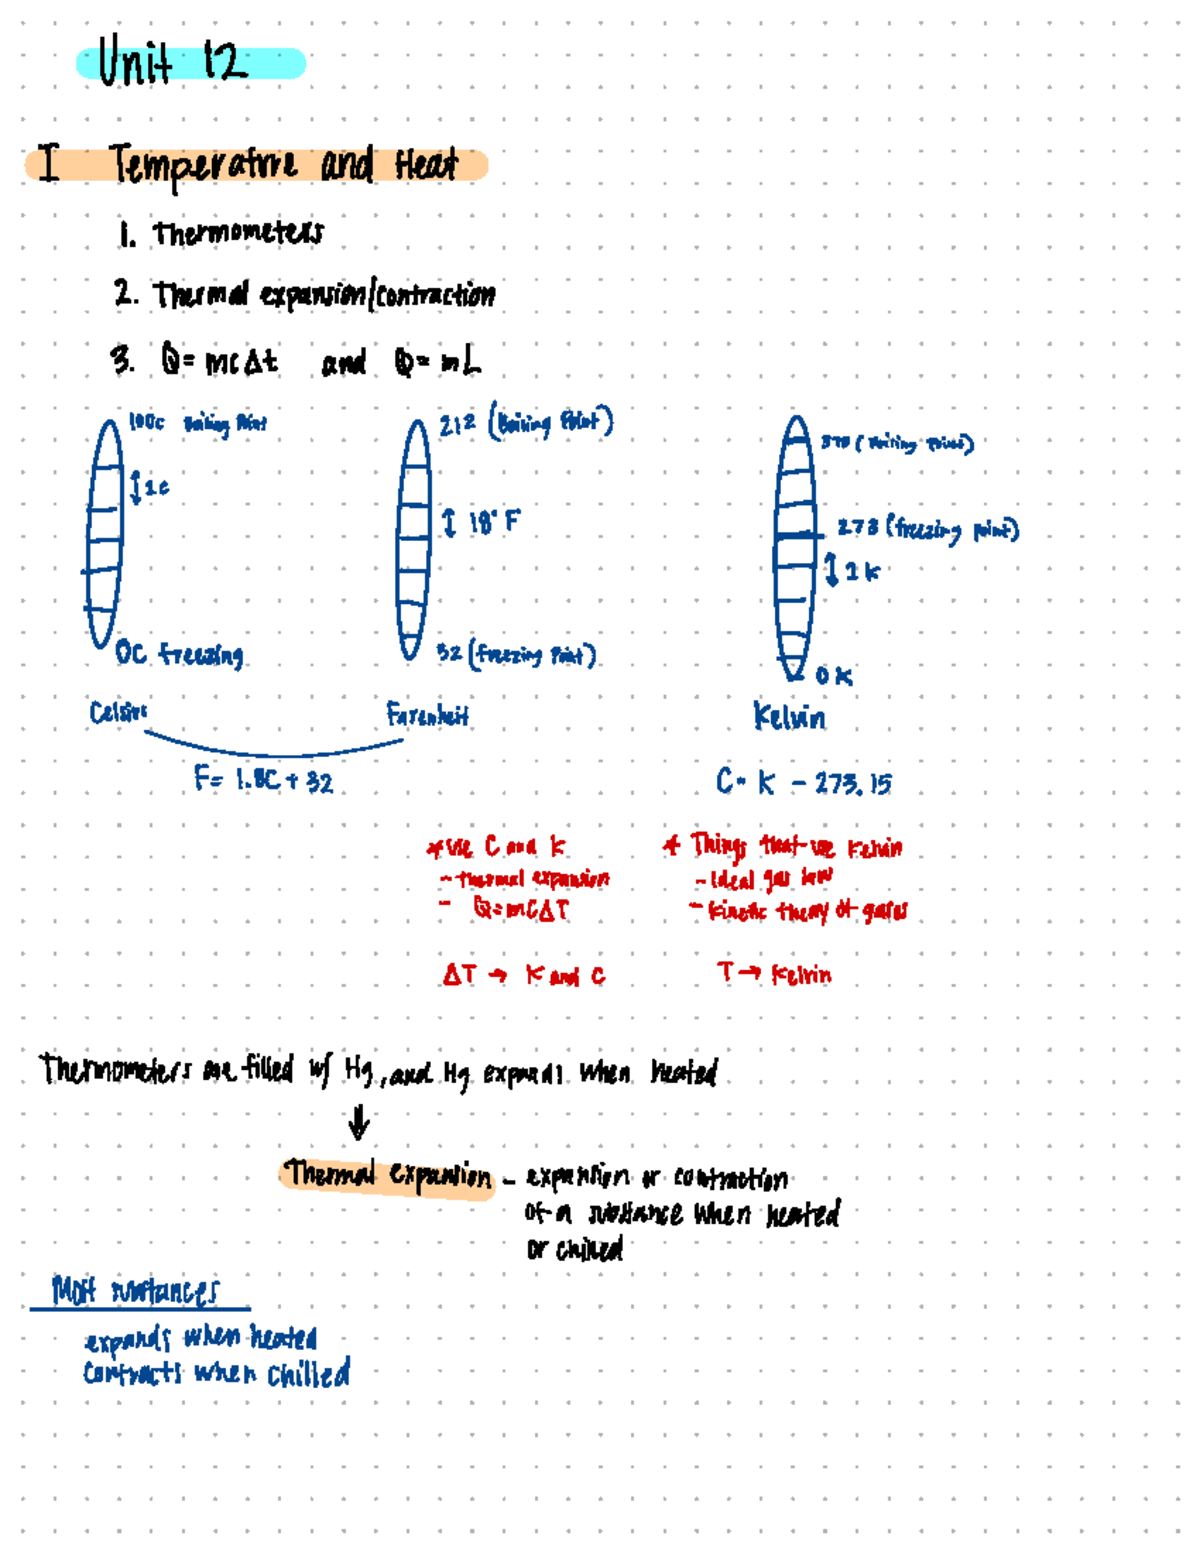 Unit 12
I Temperature and Heat
1. Thermometers
2. Thermal expansion/contraction
3. Q = mcΔt and Q = mL
100c Boiling Point
212 (Boiling Point)
373 (Boiling Point)
↕ 1c
↕ 18° F
273 (freezing point)
↕ 1 K
0c freezing
32 (freezing Point)
0 K
Celsius
Farenheit
Kelvin
F= 1.8C + 32
C = K - 273.15
* use C and K
- thermal expansion
- Q=mCΔT
ΔT → K and C
* Things that use Kelvin
- Ideal gas law
- kinetic theory of gases
T → Kelvin
Thermometers are filled w/ Hg, and Hg expands when heated
↓
Thermal expansion - expansion or contraction
of a substance when heated
or chilled
Most substances
expands when heated
contracts when chilled